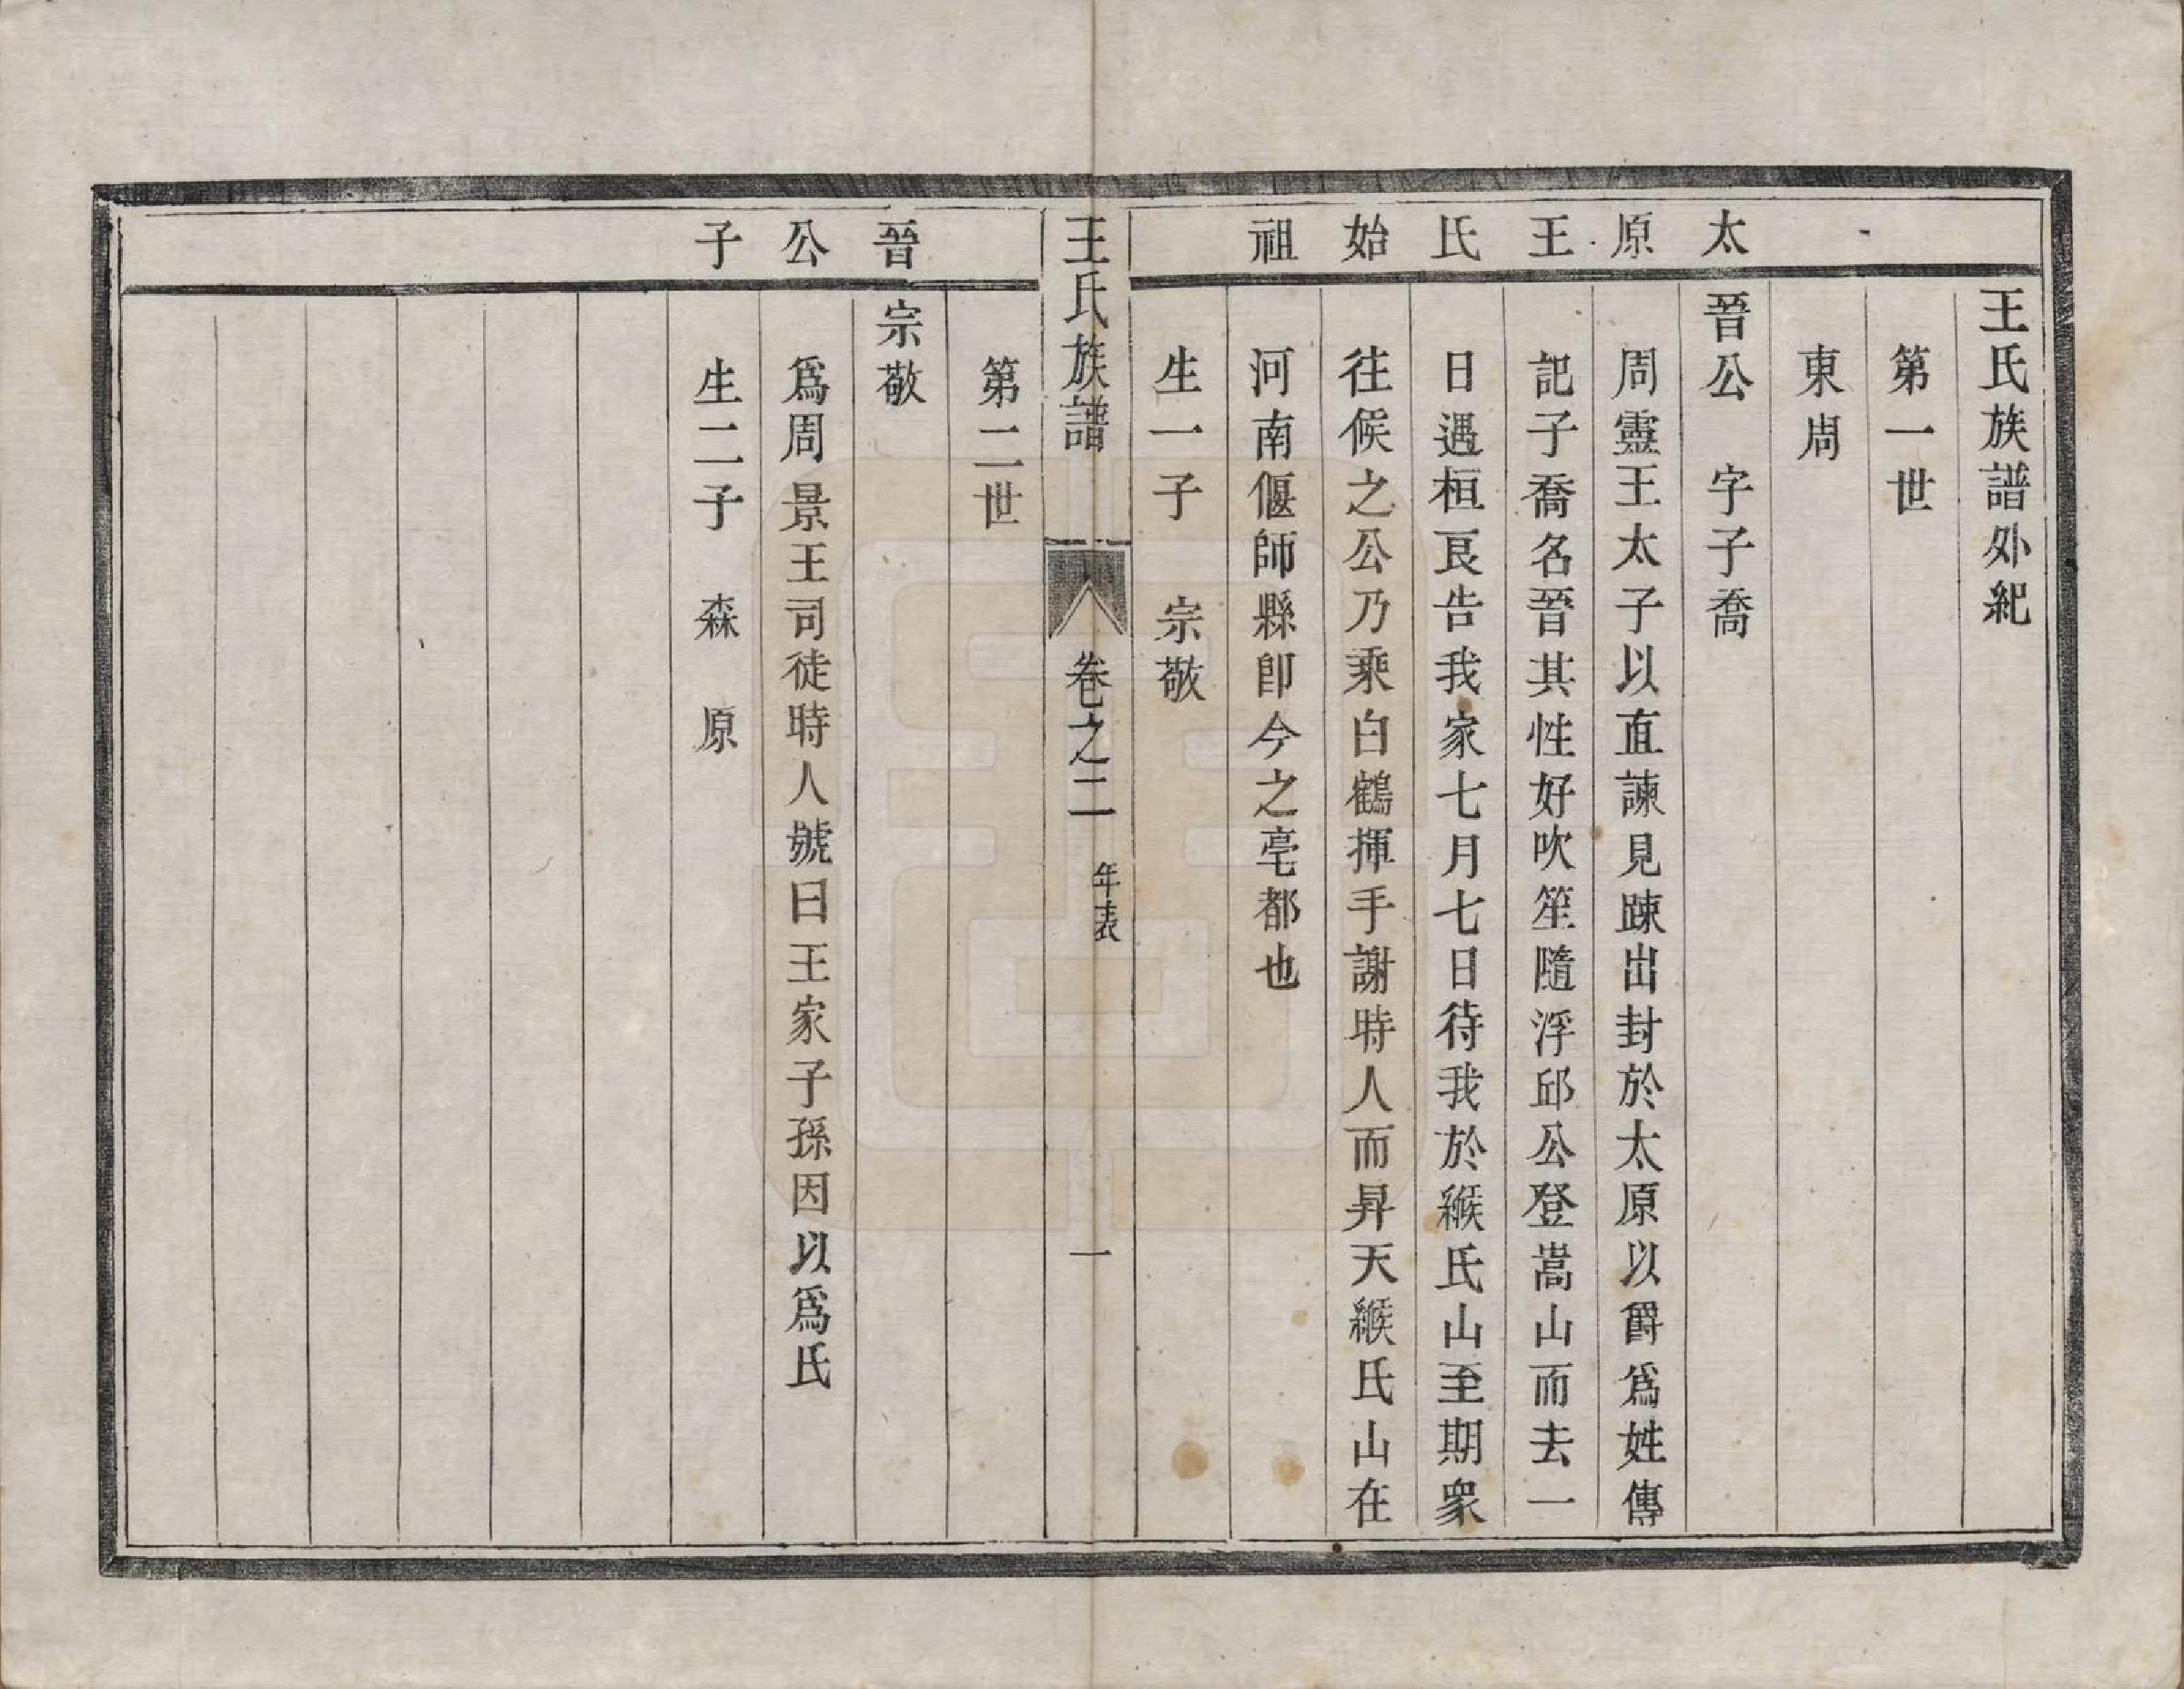 太原王氏始祖
王氏族譜外紀
第一世
東周
晉公　字子喬
周靈王太子以直諫見踈出封於太原以爵爲姓傳
記子喬名晉其性好吹笙隨浮邱公登嵩山而去一
日遇桓良告我家七月七日待我於緱氏山至期衆
往候之公乃乘白鶴揮手謝時人而昇天緱氏山在
河南偃師縣卽今之亳都也
生一子　宗敬
王氏族譜　卷之二　年表　一
晉公子
第二世
宗敬
爲周景王司徒時人號曰王家子孫因以爲氏
生二子　森　原